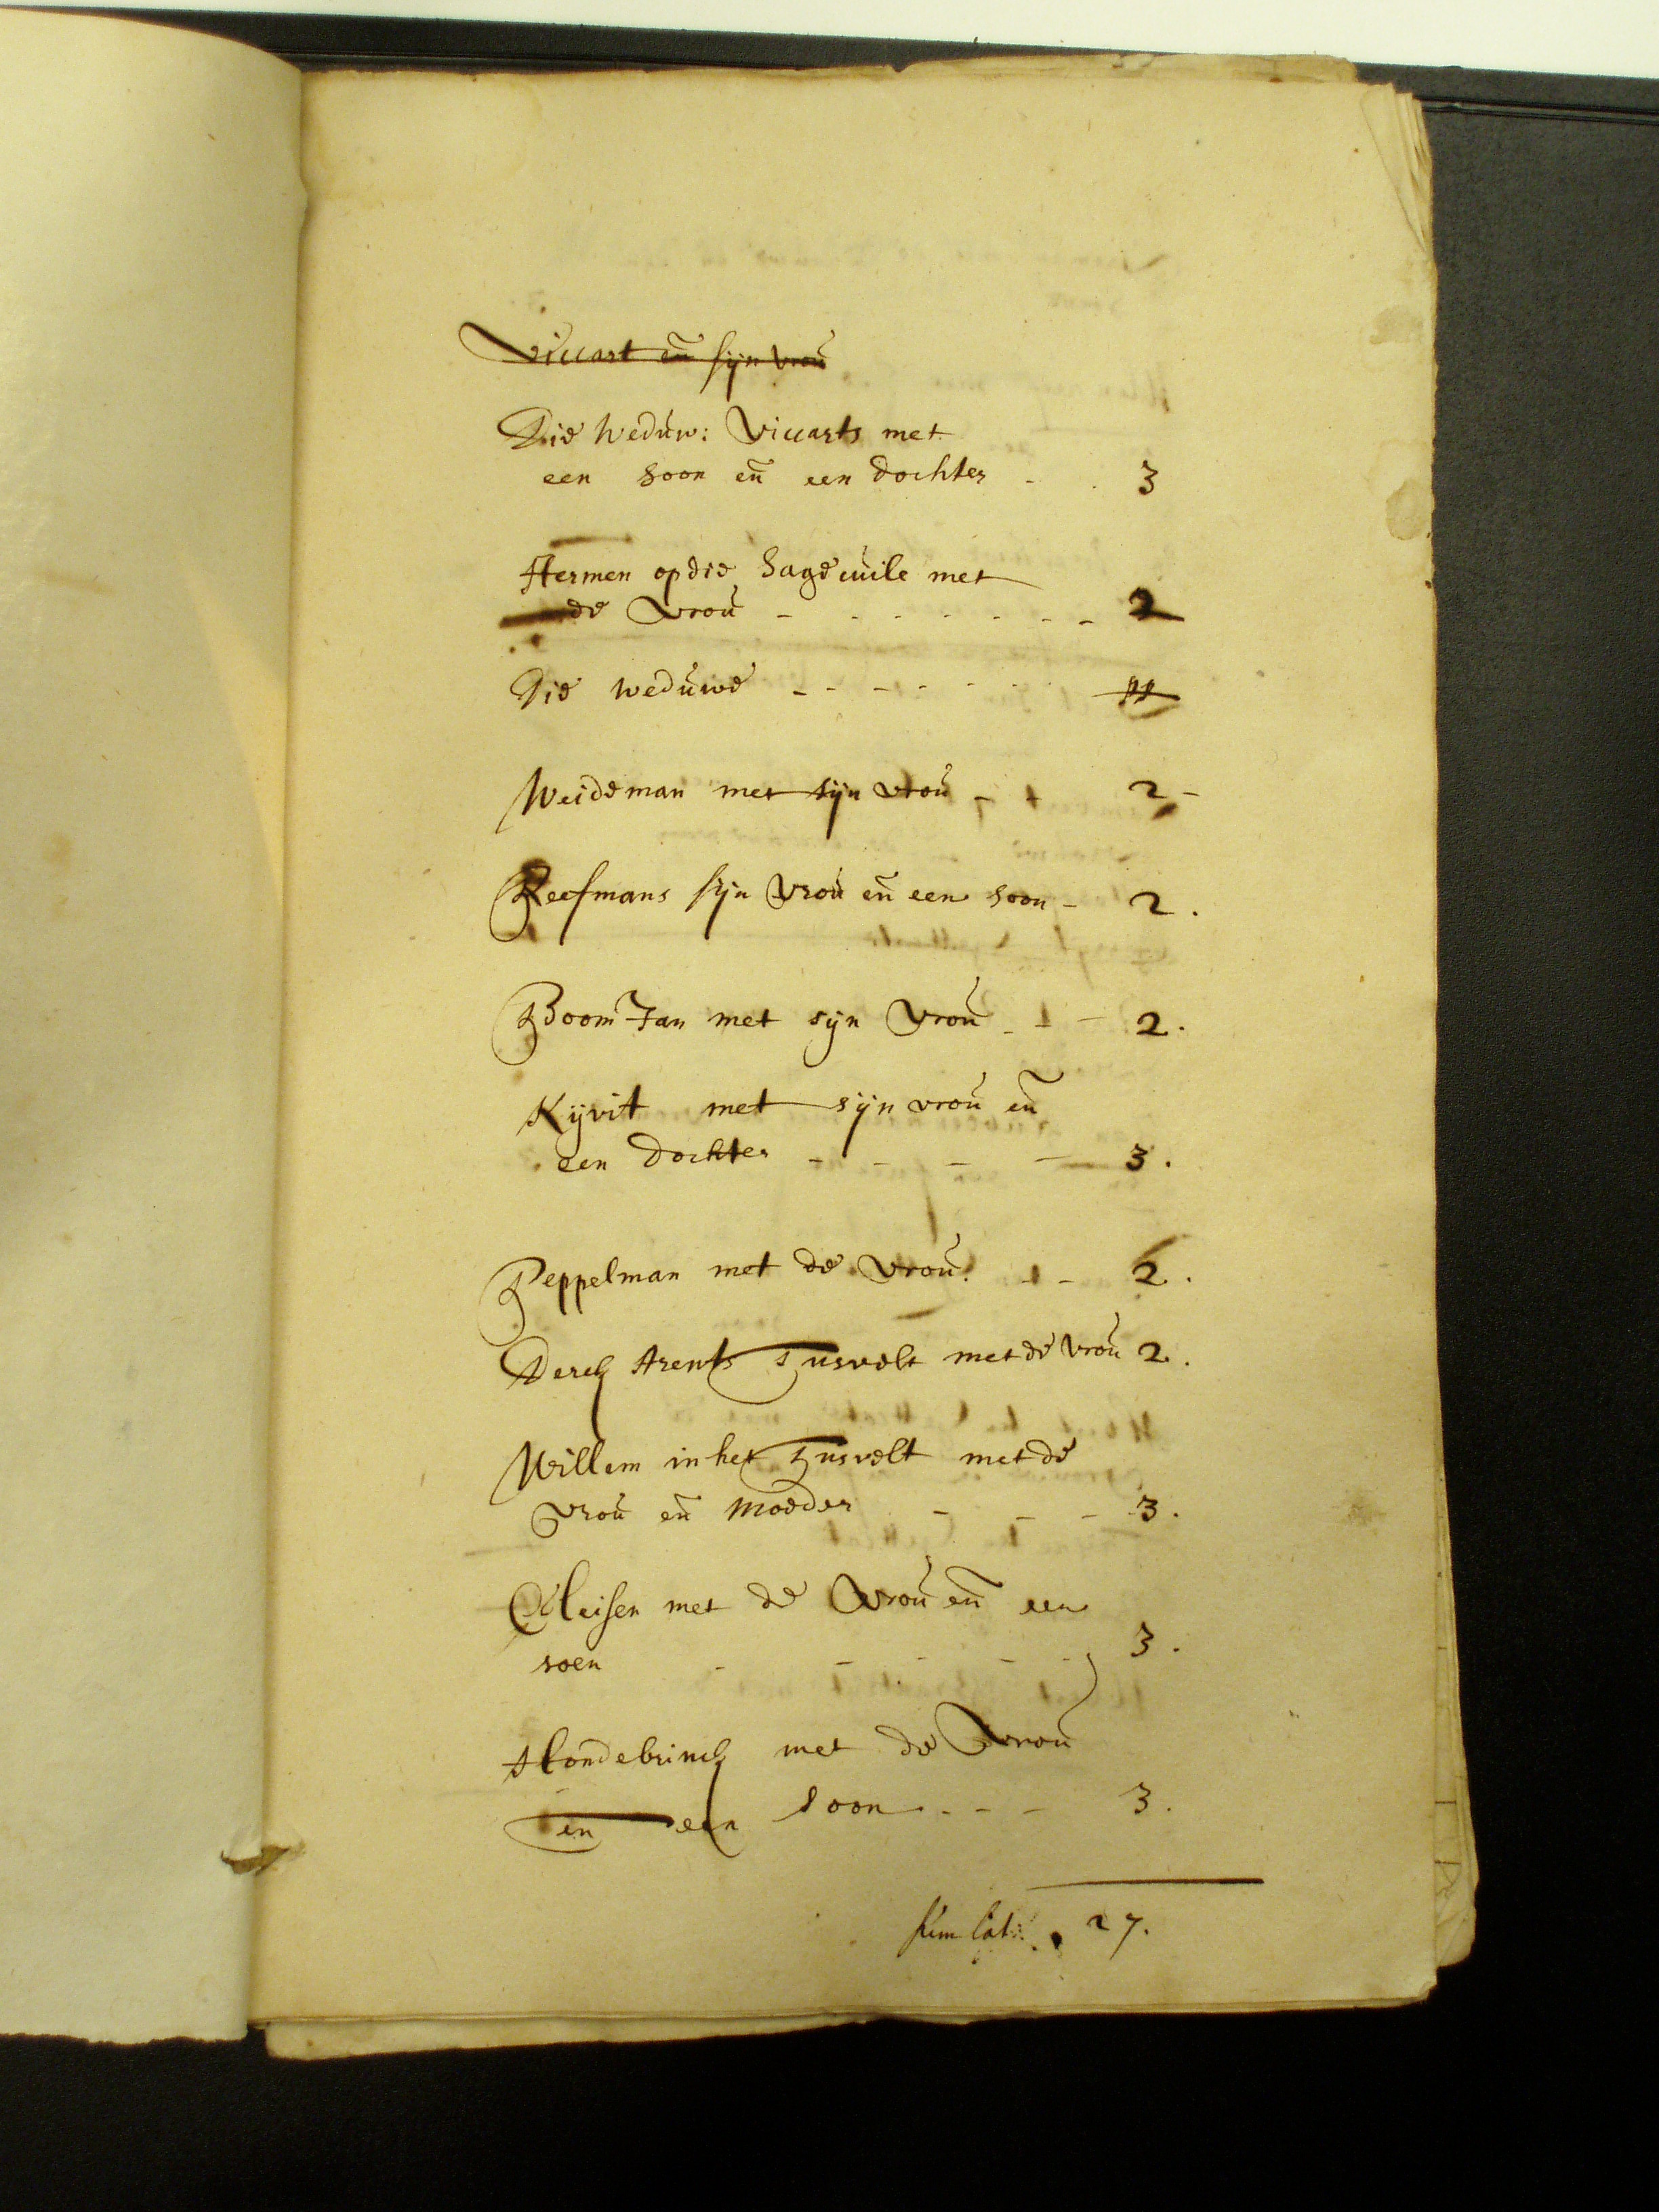 Viccart eñ sijn vroū
Die Weduw: Viccarts met
een soon eñ een dochter - . 3
Hermen op die Hage met
de Vroū - - - - - - - - 2
Die weduwe - - - - - - - pp
Weideman met sijn vroū - - 2 -
Reefmans sijn Vroū eñ een soon - 2.
Boom Jan met sijn Vroū - - - 2.
Kijvit met sijn vroū eñ
een dochter - - - - 3.
Peppelman met de vroū. - - 2.
Derck Arents Tusvelt met de vroū 2.
Willem in het Tusvelt met de
Vroū eñ Moeder - - - 3.
Cleisen met de Vroū eñ een
soen - - - - - 3.
Hondebrinck met de Vroū
en een soon - - - 3.
sūm lat: . 27.